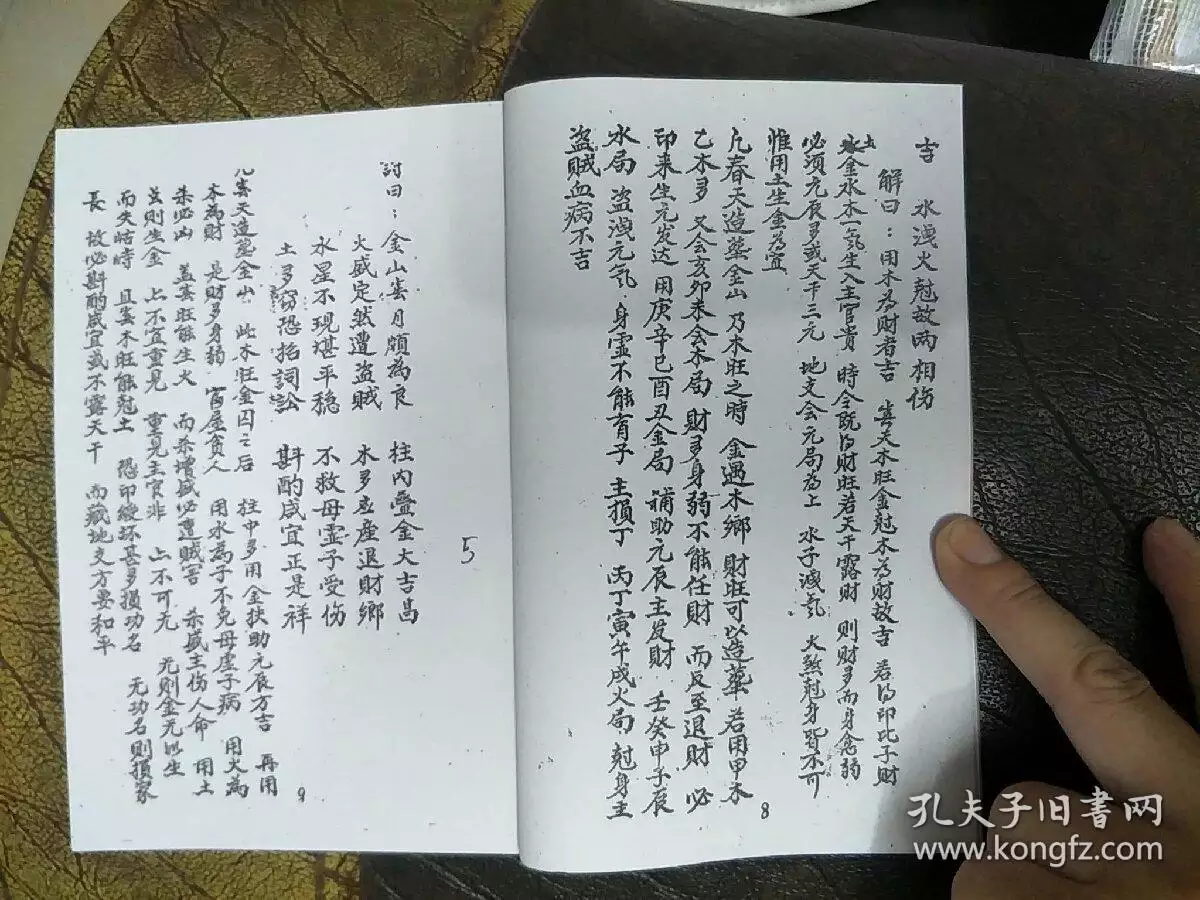 吉 水洩火尅故两相伤
解曰：用木為財者吉 春天木旺金尅木為財故吉 若得印比子財
土金水木一氣生入主官貴 時令既得財旺若天干露財 則財多而身愈弱
必须元辰多或天干三元 地支会元局為上 水子洩氣 火煞尅身皆不可
惟用土生金為宜
凡春天造塟金山 乃木旺之時 金遇木鄉 財旺可以造塟 若用甲木
乙木多 又会亥卯未会木局 財多身弱不能任財 而反至退財 必
印来生元发达 用庚辛巳酉丑金局 補助元辰主发財 壬癸申子辰
水局 盗洩元气 身虚不能育子 主損丁 丙丁寅午戌火局 尅身主
盗贼血病不吉
8
5
詩曰：金山春月頗為良 柱内叠金大吉昌
火盛定然遭盗賊 木多立産退財鄉
水星不現堪平稳 不救母虚子受伤
土多窃恐招詞訟 斟酌咸宜正是祥
凡春天造塟金山 此木旺金囚之后 柱中多用金扶助元辰方吉 再用
木為財 是財多身弱 富屋貧人 用水為子不免母虚子病 用火為
杀必凶 盖春旺能生火 而杀增盛必遭賊害 杀盛主伤人命 用土
為則生金 上不宜重見 重見主官非 上不可无 无則金无以生
而失怙恃 且春木旺能尅土 恐印綬坏甚多損功名 无功名則損家
長 故必斟酌咸宜或不露天干 而藏地支方要和平
9
孔夫子旧書网
www.kongfz.com